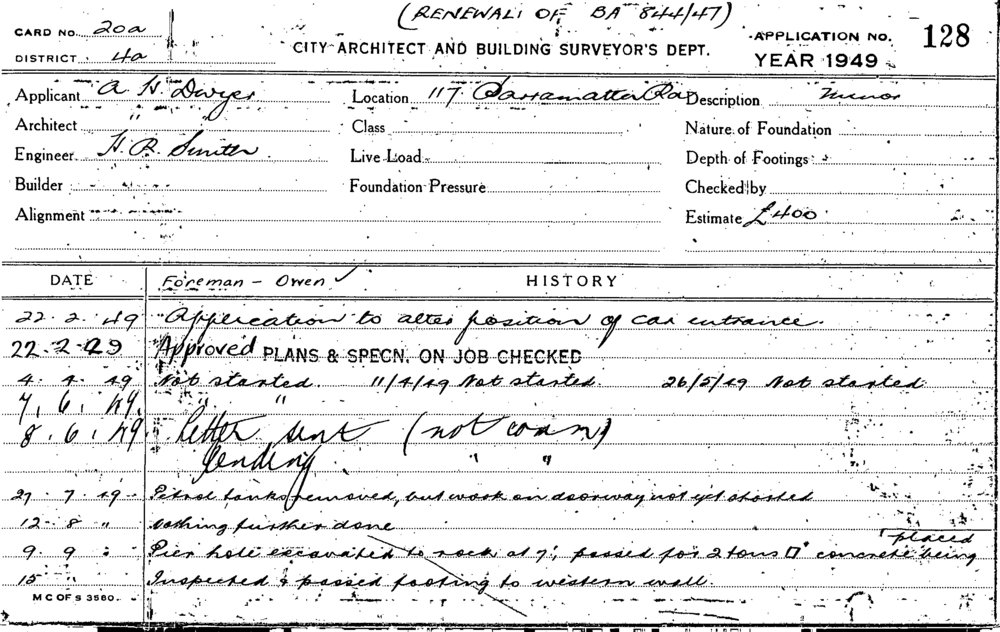 (RENEWAL OF BA 844/47)
CARD NO. 20a
DISTRICT 4a
CITY ARCHITECT AND BUILDING SURVEYOR'S DEPT.
APPLICATION NO. 128
YEAR 1949
Applicant A. H. Dwyer Location 117 Parramatta Rd Description Minor
Architect " Class Nature of Foundation
Engineer H. R. Smith Live Load Depth of Footings
Builder Foundation Pressure Checked by
Alignment Estimate £400
DATE Foreman - Owen ✓ HISTORY
22. 2. 49 Application to alter position of car entrance.
22-2-49 Approved PLANS & SPECN. ON JOB CHECKED
4. 4. 49 Not started. 11/4/49 Not started. 26/5/49 Not started
7. 6. 49. " "
8. 6. 49 Letter sent (not comm)
Pending " "
27 7 49 Petrol tanks removed, but work on doorway not yet started
12 - 8 " Nothing further done
9. 9 : Pier hole excavated to rock at 7', passed for 2 tons □' concrete being placed
15 " Inspected & passed footing to western wall.
M C OF S 3560